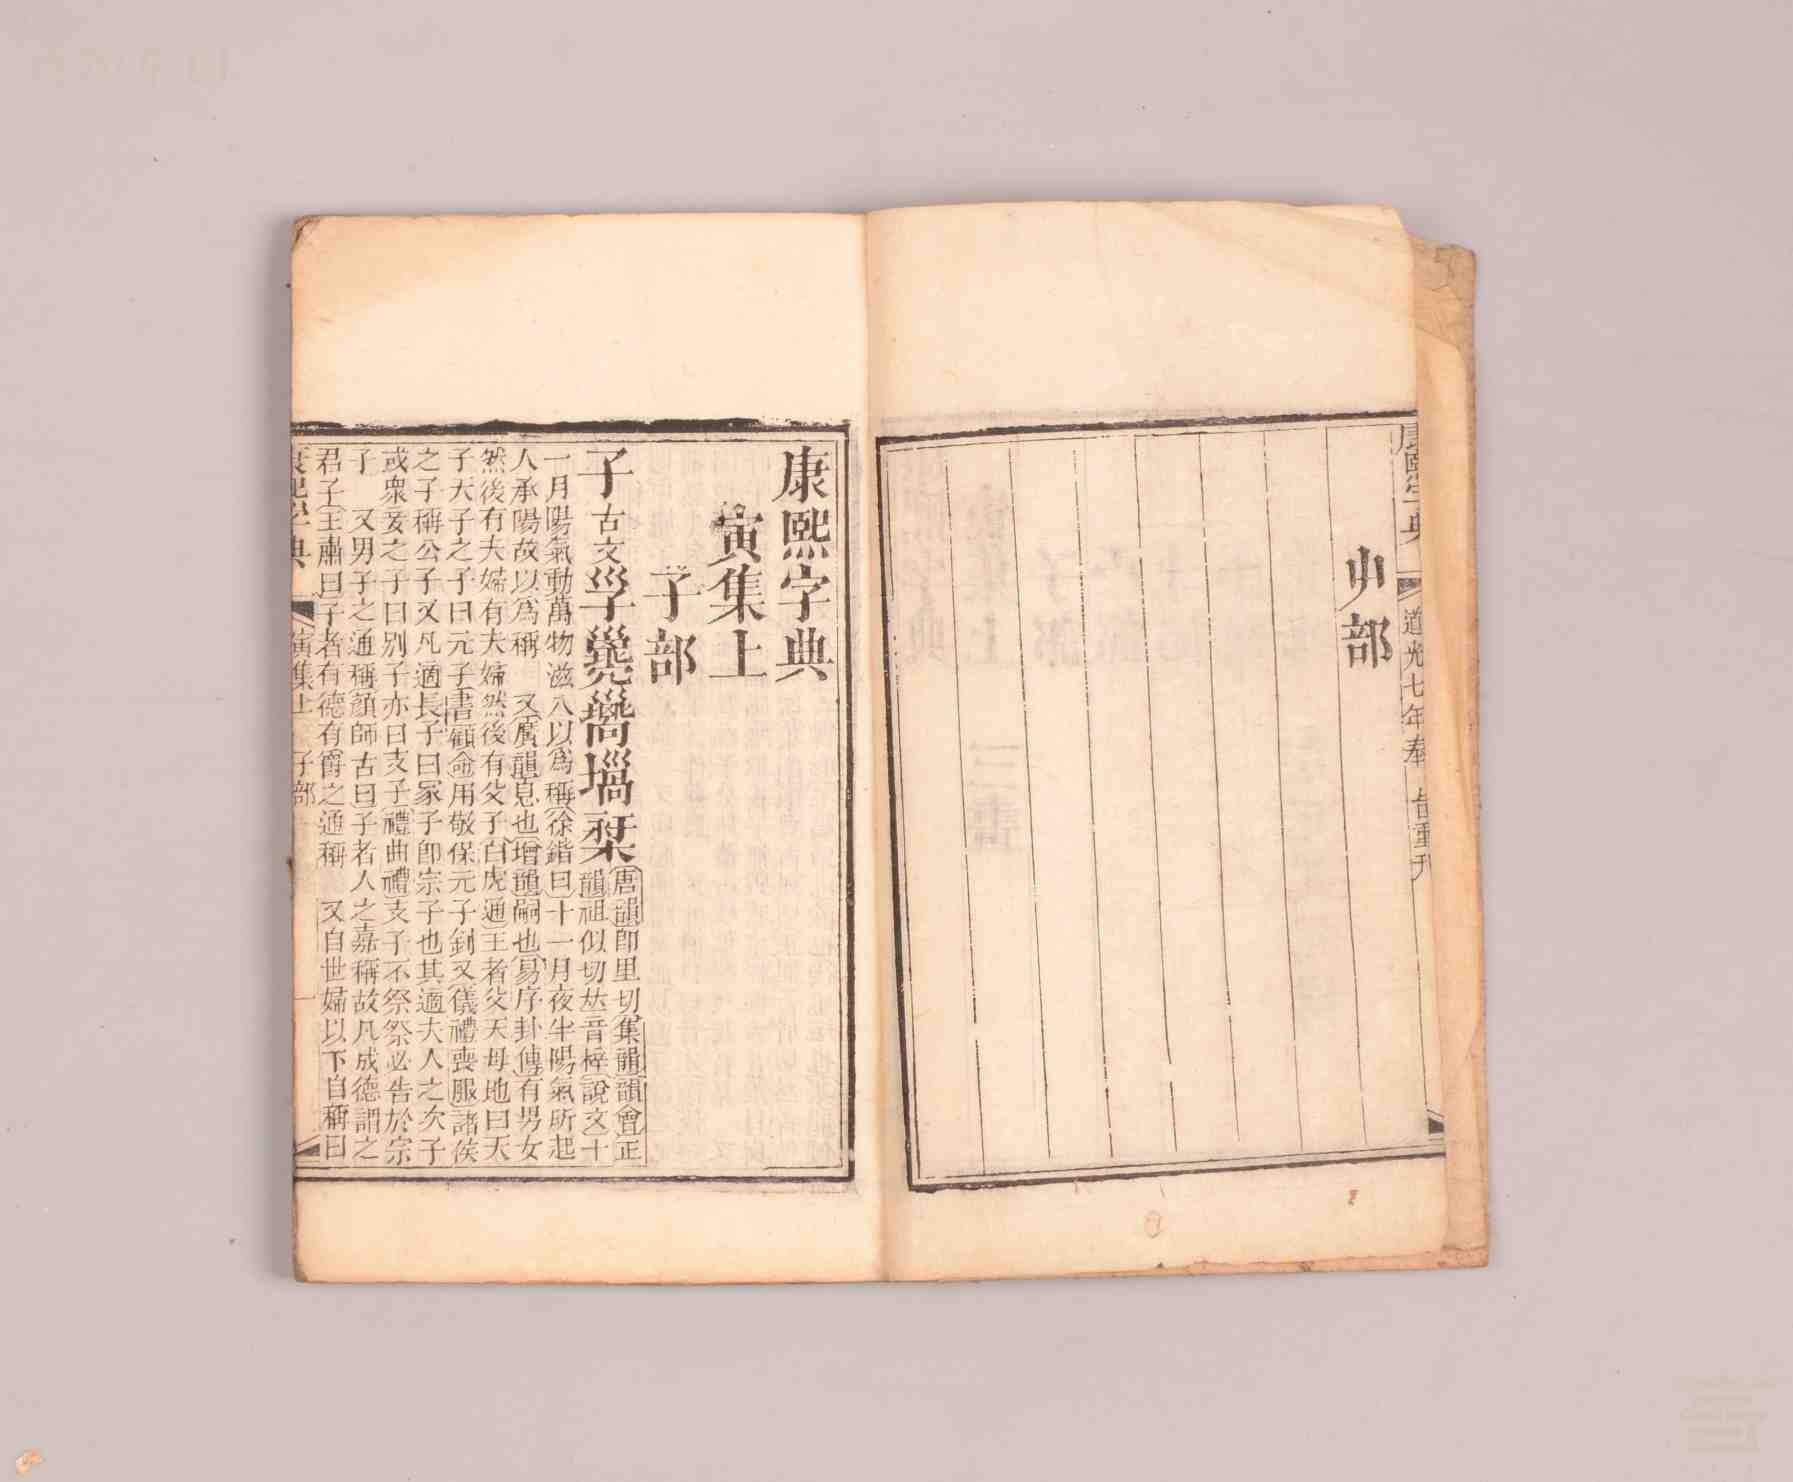 康熙字典 道光七年奉 旨重刊
屮部
康熙字典
寅集上
子部
子 古文
唐韻卽里切集韻韻會正
韻祖似切𠀤音梓說文十
一月陽氣動萬物滋入以爲稱徐鍇曰十一月夜半陽氣所起
人承陽故以爲稱 又廣韻息也增韻嗣也易序卦傳有男女
然後有夫婦有夫婦然後有父子白虎通王者父天母地曰天
子天子之子曰元子書顧命用敬保元子釗又儀禮喪服諸侯
之子稱公子又凡適長子曰冢子卽宗子也其適夫人之次子
或衆妾之子曰別子亦曰支子禮曲禮支子不祭祭必告於宗
子 又男子之通稱顏師古曰子者人之嘉稱故凡成德謂之
君子王肅曰子者有德有爵之通稱 又自世婦以下自稱曰
康熙字典 寅集上 子部 一